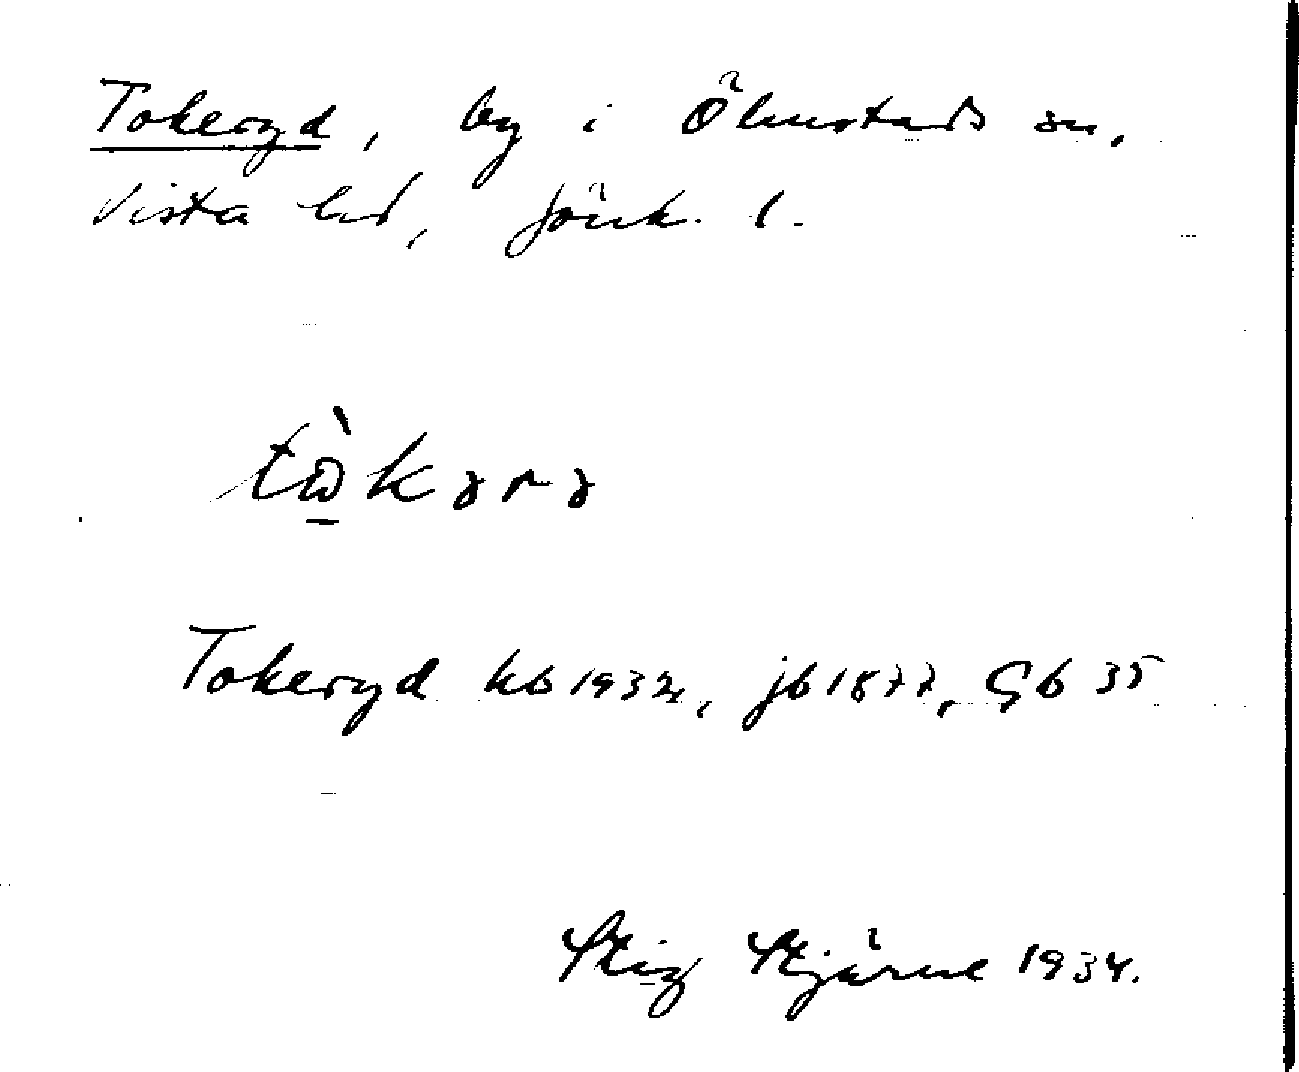 Tokeryd, by i Ölmstads sn,
Vista hd, Jönk. l.
tὼ̱kərə
Tokeryd kb 1932, jb 1877, Gb 35
Stig Stjärne 1934.